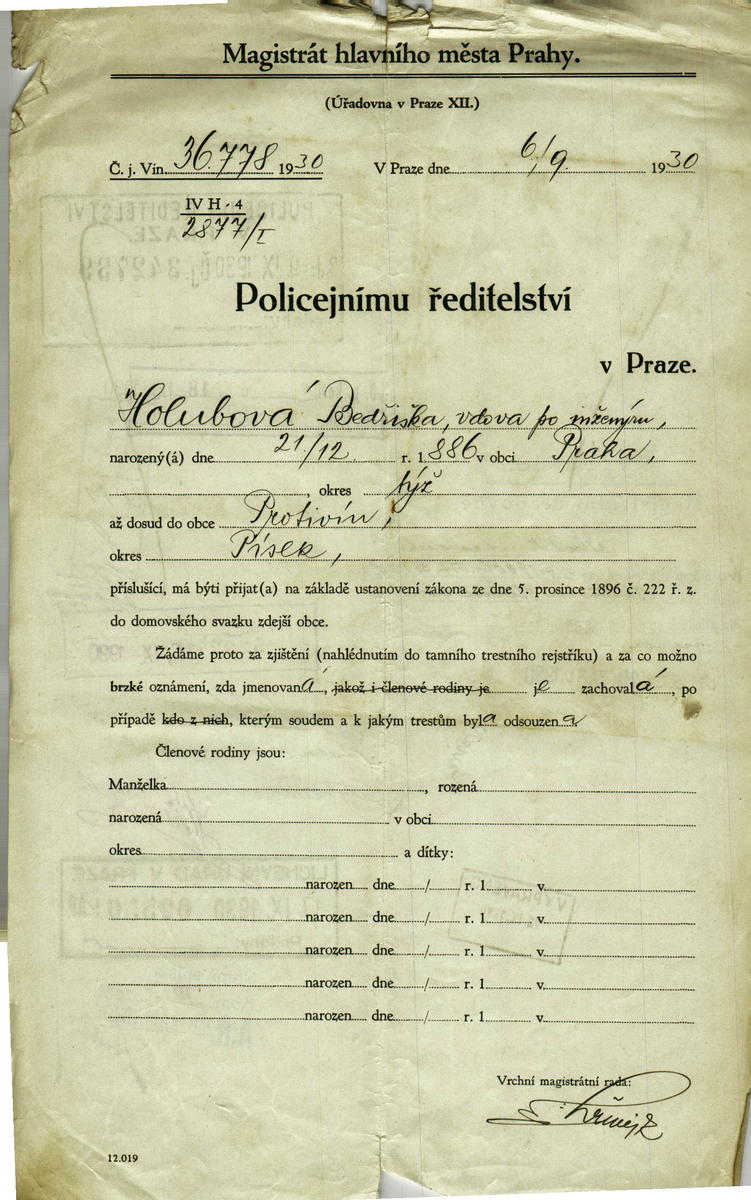 Magistrát hlavního města Prahy.
(Úřadovna v Praze XII.)
Č. j. Vin. 36.778 1930 V Praze dne 6/9. 1930
IV H - 4
2877/I
Policejnímu ředitelství
v Praze.
Holubová Bedřiška, vdova po inženýru,
narozený(á) dne 21/12. r. 1.886 v obci Praha,
, okres týž
až dosud do obce Protivín,
okres Písek,
příslušící, má býti přijat(a) na základě ustanovení zákona ze dne 5. prosince 1896 č. 222 ř. z.
do domovského svazku zdejší obce.
Žádáme proto za zjištění (nahlédnutím do tamního trestního rejstříku) a za co možno
brzké oznámení, zda jmenovaná, jakož i členové rodiny je je zachovalá, po
případě kdo z nich, kterým soudem a k jakým trestům byla odsouzena
Členové rodiny jsou:
Manželka , rozená
narozená v obci
okres a dítky:
narozen dne / r. 1 v.
narozen dne / r. 1 v.
narozen dne / r. 1 v.
narozen dne / r. 1 v.
narozen dne / r. 1 v.
Vrchní magistrátní rada:
12.019